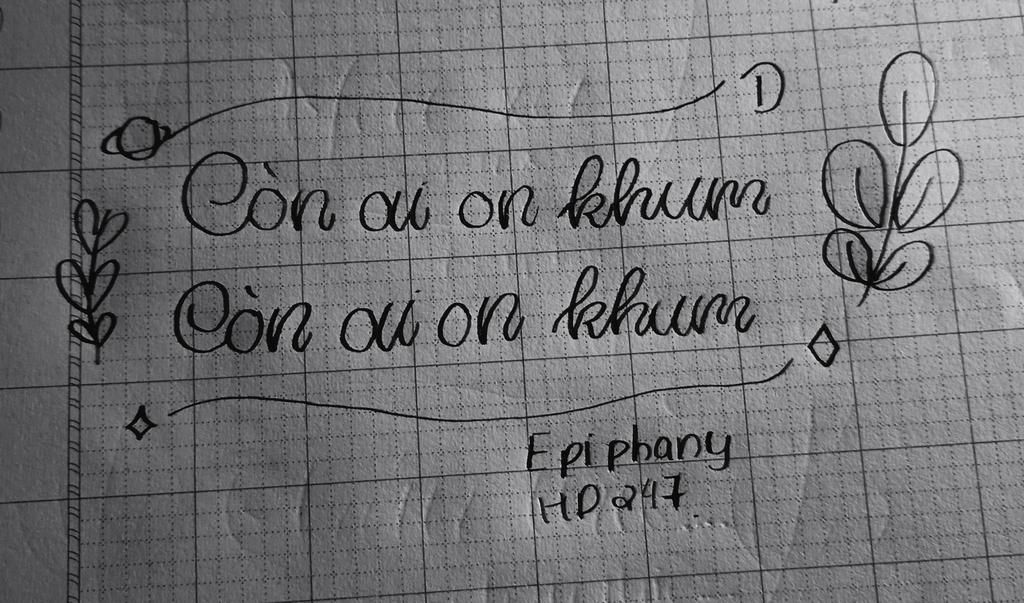 Còn ai on khum
Còn ai on khum
Epiphany
HD247